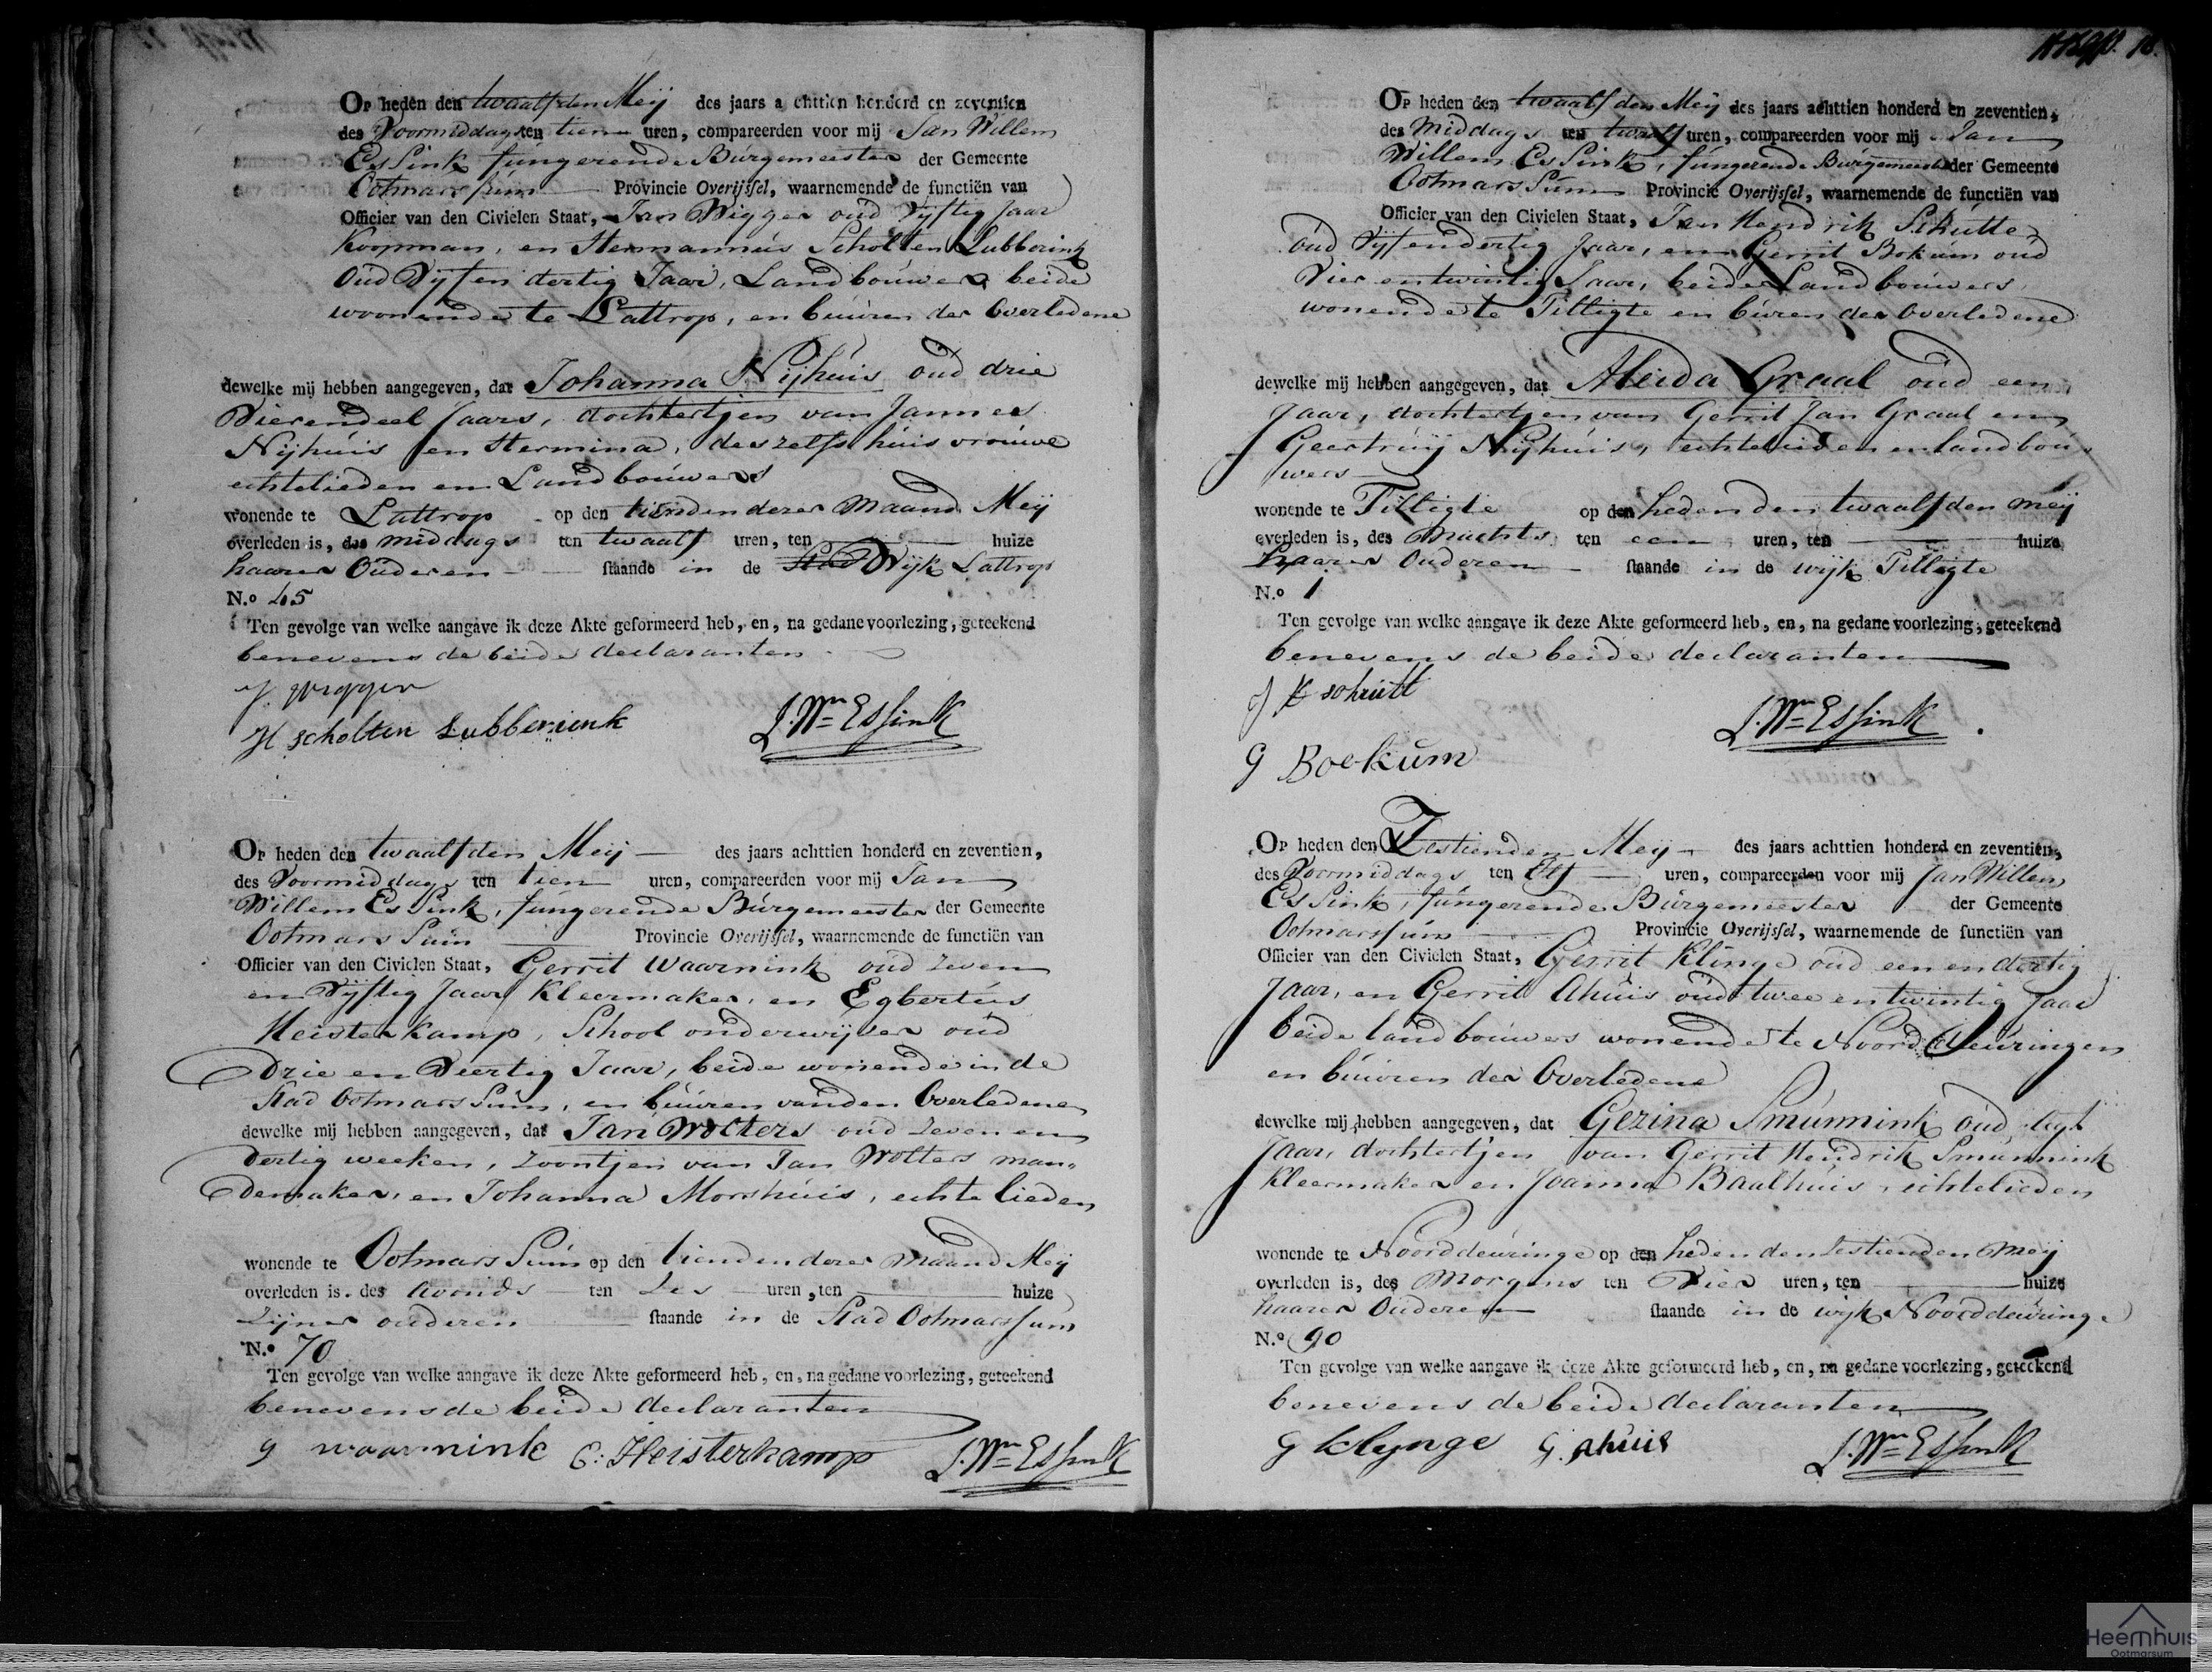 Op heden den twaalfden Meij des jaars achttien honderd en zeventien
des Voormiddags ten tien uren, compareerden voor mij Jan Willem
Essink fúngerende Búrgemeester der Gemeente
Ootmarssúm Provincie Overijssel, waarnemende de functiën van
Officier van den Civielen Staat, Jan Wigger oúd Vijftig Jaar
Koopman, en Hermannús Scholten Lubberink
Oúd Vijf en dertig Jaar, Landboúwer, beide
woonende te Lattrop, en búúren der Overledene
dewelke mij hebben aangegeven, dat Johanna Nijhúis oúd drie
Vierendeel Jaars, dochtertjen van Jannes
Nijhúis en Hermina, deszelfs húisvroúwe
echtelieden en Landboúwers
wonende te Lattrop op den tienden dezer Maand Meij
overleden is, des middags ten twaalf uren, ten huize
haarer Oúderen staande in de Stad Wijk Lattrop
N.o 45
Ten gevolge van welke aangave ik deze Akte geformeerd heb, en, na gedane voorlezing, geteekend
benevens de beide declaranten
J Wigger
H Scholten Lubberink J. Wm Essink
Op heden den twaalfden Meij des jaars achttien honderd en zeventien,
des Voormiddags ten tien uren, compareerden voor mij Jan
Willem Essink, fungerende Búrgemeester der Gemeente
Ootmarssúm Provincie Overijssel, waarnemende de functiën van
Officier van den Civielen Staat, Gerrit Waarnink oúd zeven
en Vijftig Jaar Kleermaker, en Egbertús
Heisterkamp, School onderwijzer oúd
Drie en Veertig Jaar, beide wonende in de
Stad Ootmarssúm, en búúren van den Overledenen
dewelke mij hebben aangegeven, dat Jan Wolters oúd Zeven en
dertig weeken, zoontjen van Jan Wolters man=
demaker, en Johanna Morshúis, echte lieden
wonende te Ootmarssúm op den tienden dezer maand Meij
overleden is, des Avonds ten Zes uren, ten huize
Zijner ouderen staande in de Stad Ootmarssúm
N.o 70
Ten gevolge van welke aangave ik deze Akte geformeerd heb, en, na gedane voorlezing, geteekend
benevens de beide declaranten
g waarnink E: Heisterkamp J. Wm Essink
Op heden den twaalfden Meij des jaars achttien honderd en zeventien,
des Middags ten twaalf uren, compareerden voor mij Jan
Willem Essink, fúngerende Búrgemeester der Gemeente
Ootmarssúm Provincie Overijssel, waarnemende de functiën van
Officier van den Civielen Staat, Jan Hendrik Schútte
oúd Vijf en dertig Jaar, en Gerrit Bokúm oúd
Vier en twintig Jaar, beide Landboúwers,
wonende te Tilligte en búren der Overledene
dewelke mij hebben aangegeven, dat Aleida Graal oúd een
Jaar, dochtertjen van Gerrit Jan Graal en
Geertruij Nijhúis, echtelieden en landboú
wers
wonende te Tilligte op den heden den twaalfden Meij
overleden is, des Nachts ten een uren, ten huize
haarer Ouderen staande in de wijk Tilligte
N.o 1
Ten gevolge van welke aangave ik deze Akte geformeerd heb, en, na gedane voorlezing, geteekend
benevens de beide declaranten
J H schutt
J. Wm Essink
G Boekúm
Op heden den Zestienden Meij des jaars achttien honderd en zeventien,
des Voormiddags ten Elf uren, compareerden voor mij Jan Willem
Essink, fúngerende Búrgemeester der Gemeente
Ootmarssúm Provincie Overijssel, waarnemende de functiën van
Officier van den Civielen Staat, Gerrit Klinge oúd een en dertig
Jaar, en Gerrit Ahúis oúd twee en twintig Jaar
beide landboúwers wonende te Noord Deúringen
en búúren der Overledene
dewelke mij hebben aangegeven, dat Gezina Smúnnink oúd agt
Jaar, dochtertjen van Gerrit Hendrik Smúnnink
Kleermaker en Joanna Baalhúis, echtelieden
wonende te Noorddeúringe op den heden den Zestienden Meij
overleden is, des Morgens ten Vier uren, ten huize
haarer Oúderen staande in de wijk Noorddeúringe
N.o 90
Ten gevolge van welke aangave ik deze Akte geformeerd heb, en, na gedane voorlezing, geteekend
benevens de beide declaranten
G Klynge G. Ahúis J. Wm Essink
Heemhuis
Ootmarsum